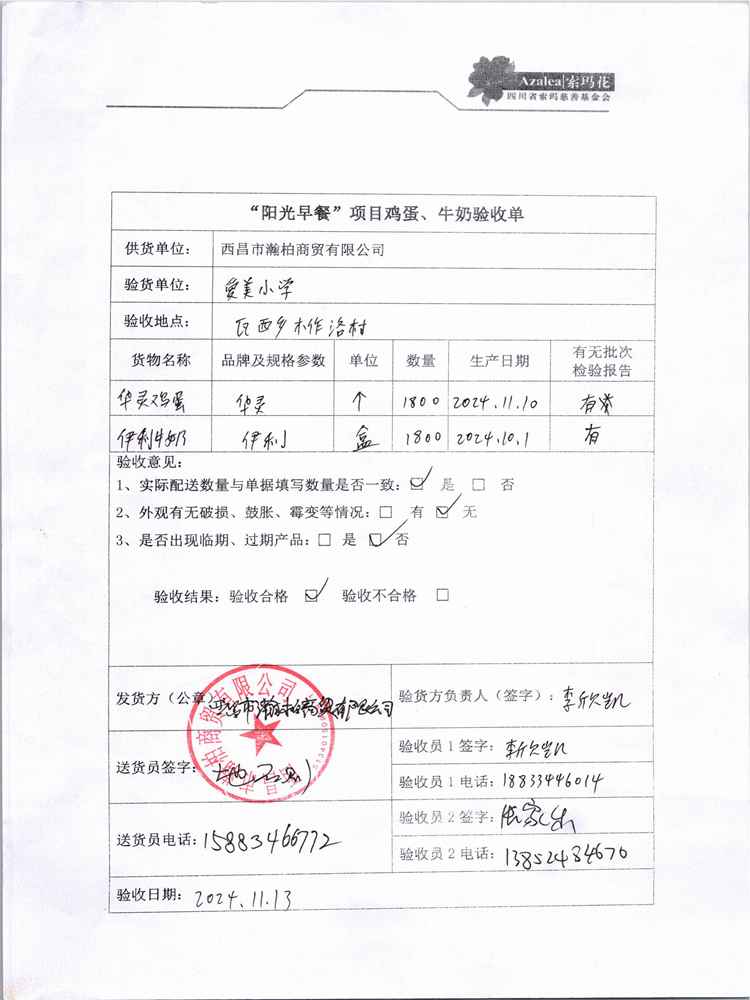 Azalea|索玛花
四川省索玛慈善基金会
“阳光早餐”项目鸡蛋、牛奶验收单
供货单位： 西昌市瀚柏商贸有限公司
验货单位： 爱美小学
验收地点： 瓦西乡木作洛村
货物名称 品牌及规格参数 单位 数量 生产日期 有无批次检验报告
华灵鸡蛋 华灵 个 1800 2024.11.10 有
伊利牛奶 伊利 盒 1800 2024.10.1 有
验收意见：
1、实际配送数量与单据填写数量是否一致：☑ 是 □ 否
2、外观有无破损、鼓胀、霉变等情况：□ 有 ☑ 无
3、是否出现临期、过期产品：□ 是 ☑ 否
验收结果：验收合格 ☑ 验收不合格 □
发货方（公章） 西昌市瀚柏商贸有限公司
验货方负责人（签字）：李欣凯
送货员签字：
验收员1签字：李欣凯
验收员1电话：18833446014
送货员电话：15883466772
验收员2签字：
验收员2电话：13852484670
验收日期：2024.11.13